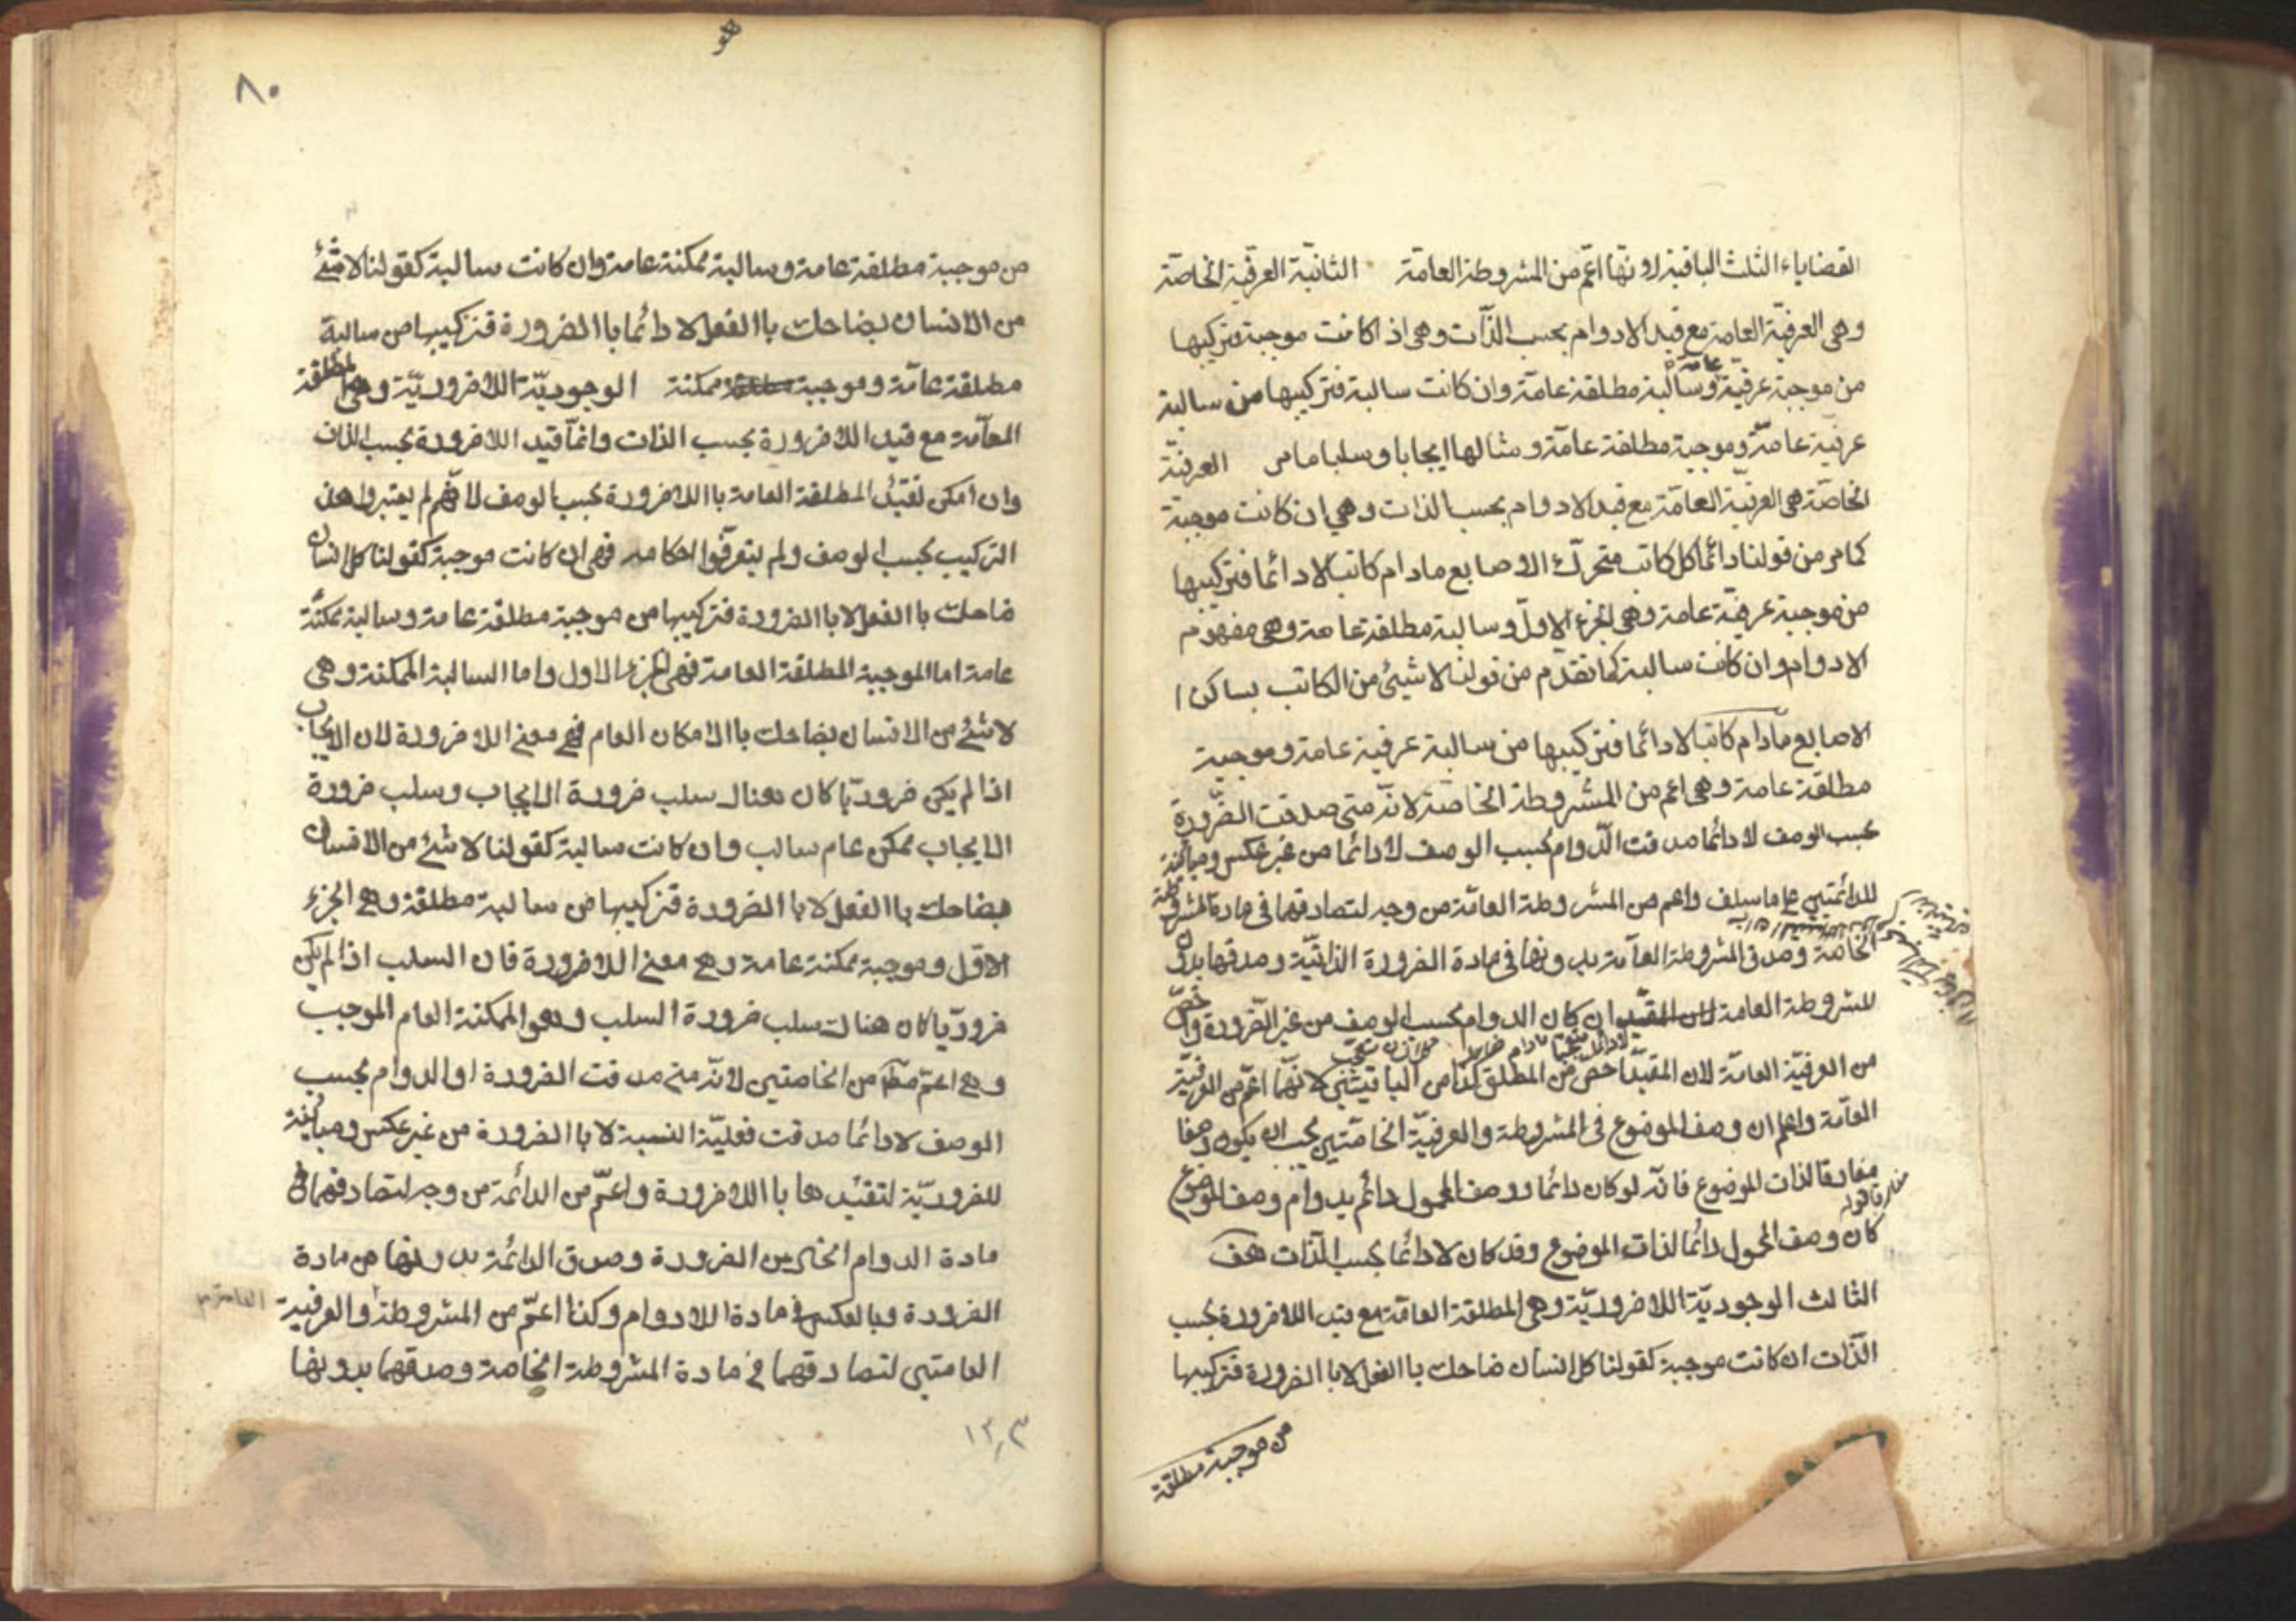 القضاياء الثلث الباقية لاونها اعم من المشروطة العامة الثانية العرفية الخاصة
وهى العرفية العامة مع قيد الادوام بحسب الذات وهى اذا كانت موجبة فتركيبها
من موجبة عرفية عامة وسالبة مطلقة عامة وان كانت سالبة فتركيبها من سالبة
عرفية عامة وموجبة مطلقة عامة ومثالها ايجابا وسلبا مامر العرفية
الخاصة هى العرفية العامة مع قيد الادوام بحسب الذات وهي ان كانت موجبة
كما مر من قولنا دائما كل كاتب متحرك الاصابع مادام كاتبا لادائما فتركيبها
من موجبة عرفية عامة وهى الجزء الاول وسالبة مطلقة عامة وهى مفهوم
الادوام وان كانت سالبة كما تقدم من قولنا لا شيئ من الكاتب بساكن ا
الاصابع مادام كاتبا لادائما فتركيبها من سالبة عرفية عامة وموجبة
مطلقة عامة وهى اعم من المشروطة الخاصة لانه متى صدقت الضرورة
بحسب الوصف لا دائما صدقت الدوام بحسب الوصف لادائما من غير عكس ومباينة
للدائمتين على ماسلف واعم من المشروطة العامة من وجه لتصادقهما فى مادة المشروطة
الخاصة وصدق المشروطة العامة بدونها فى مادة الضرورة الذاتية وصدقها بدون
المشروطة العامة ان كان الدوام بحسب الوصف من غير الضرورة واخص
من العرفية العامة لان المقيد اخص من المطلق وكذا من الباقيتين لانهما اعم من العرفية
العامة واعلم ان وصف الموضوع فى المشروطة والعرفية الخاصتين يجب ان يكون وصفا
مفارقا لذات الموضوع فانه لو كان دائما ووصف المحمول دائم بدوام وصف الموضوع
كان وصف المحمول دائما لذات الموضوع وقد كان لادائما بحسب الذات هف
الثالث الوجودية اللاضرورية وهى المطلقة العامة مع قيد اللاضرورة بحسب
الذات ان كانت موجبة كقولنا كل انسان ضاحك باالفعل لا باالضرورة فتركيبها
من موجبة مطلقة
٨٠
من موجبة مطلقة عامة وسالبة ممكنة عامة وان كانت سالبة كقولنا لا شئ
من الانسان بضاحك باالفعل لا دائما باالضرورة فتركيبها من سالبة
مطلقة عامة وموجبة ممكنة الوجودية اللاضرورية وهى المطلقة
العامة مع قيد اللاضرورة بحسب الذات وانما قيد اللاضرورة بحسب الذات
وان امكن تقيد المطلقة العامة باللاضرورة بحسب الوصف لانهم لم يعتبروا هذا
التركيب بحسب الوصف ولم يتعرفوا احكامه فهى ان كانت موجبة كقولنا كل انسان
ضاحك باالفعل لا باالضرورة فتركيبها من موجبة مطلقة عامة وسالبة ممكنة
عامة اما الموجبة المطلقة العامة فهى الجزء الاول واما السالبة الممكنة وهى
لا شئ من الانسان بضاحك باالامكان العام فهى معنى اللاضرورة لان الايجاب
اذا لم يكن ضروريا كان هناك سلب ضرورة الايجاب وسلب ضرورة
الايجاب ممكن عام سالب وان كانت سالبة كقولنا لا شئ من الانسان
بضاحك باالفعل لا باالضرورة فتركيبها من سالبة مطلقة وهى الجزء
الاول وموجبة ممكنة عامة وهى معنى اللاضرورة فان السلب اذا لم يكن
ضروريا كان هناك سلب ضرورة السلب وهو الممكنة العام الموجب
وهى اعم من الخاصتين لانه متى صدقت الضرورة او الدوام بحسب
الوصف لادائما صدقت فعلية النسبة لا باالضرورة من غير عكس ومباينة
للضرورية لتقيدها باللاضرورة واعم من الدائمة من وجه لتصادقهما فى
مادة الدوام الخالى من الضرورة وصدق الدائمة بدونها من مادة
الضرورة وبالعكس فى مادة اللادوام وكذا اعم من المشروطة والعرفية
العامتين لتصادقهما فى مادة المشروطة الخاصة وصدقهما بدونها